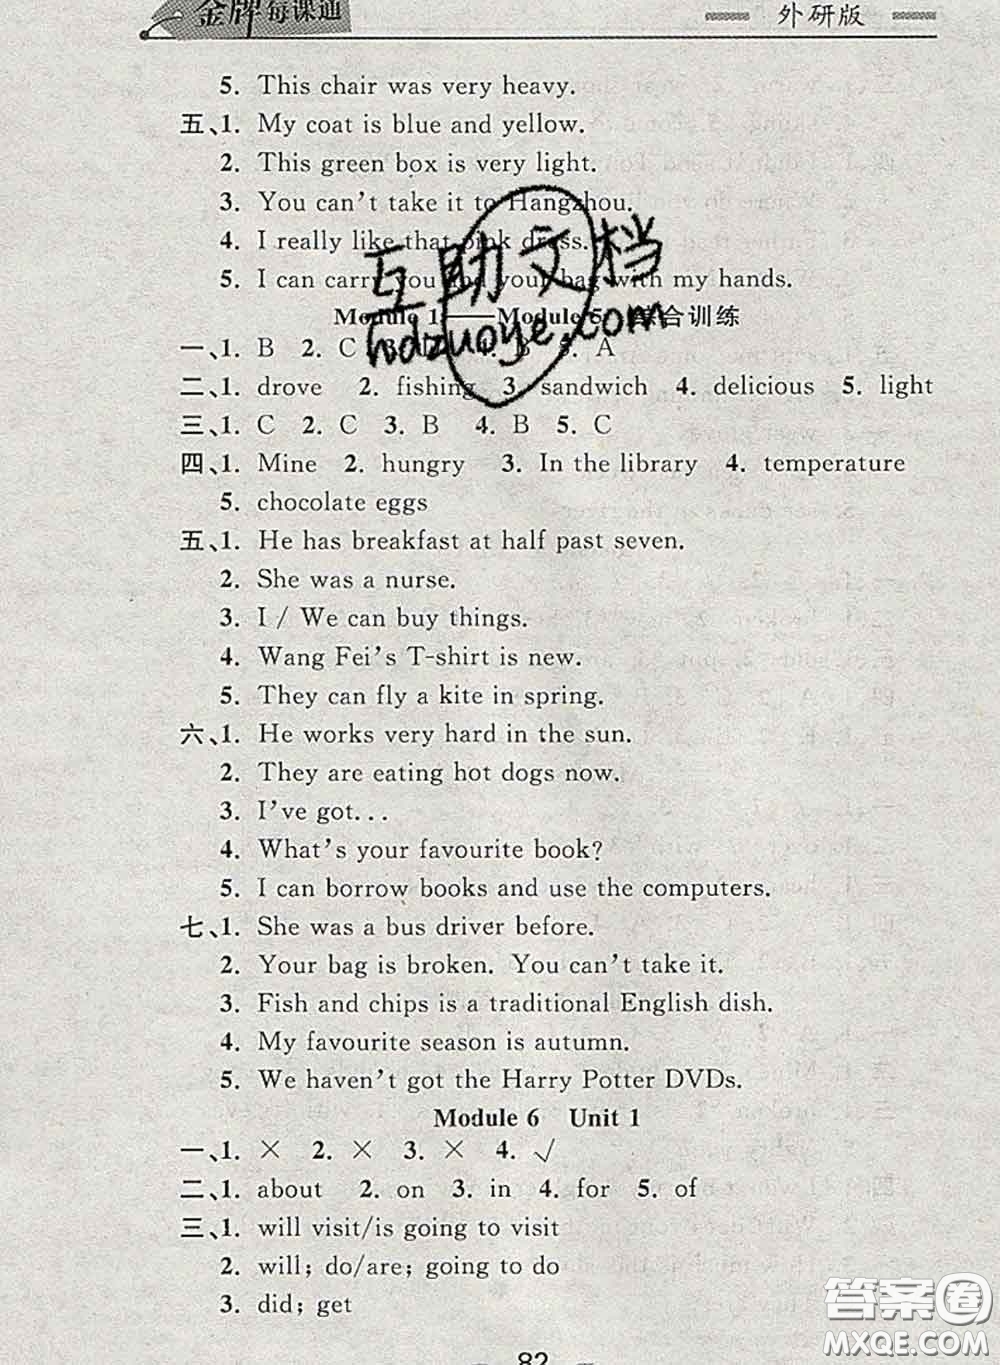 金牌每课通
外研版
5. This chair was very heavy.
五、1. My coat is blue and yellow.
2. This green box is very light.
3. You can't take it to Hangzhou.
4. I really like that pink dress.
5. I can carry you and your bag with my hands.
Module 1——Module 5 综合训练
互助文档
hdzuoye.com
一、1. B 2. C 3. 4. B 5. A
二、1. drove 2. fishing 3. sandwich 4. delicious 5. light
三、1. C 2. C 3. B 4. B 5. C
四、1. Mine 2. hungry 3. In the library 4. temperature
5. chocolate eggs
五、1. He has breakfast at half past seven.
2. She was a nurse.
3. I / We can buy things.
4. Wang Fei's T-shirt is new.
5. They can fly a kite in spring.
六、1. He works very hard in the sun.
2. They are eating hot dogs now.
3. I've got...
4. What's your favourite book?
5. I can borrow books and use the computers.
七、1. She was a bus driver before.
2. Your bag is broken. You can't take it.
3. Fish and chips is a traditional English dish.
4. My favourite season is autumn.
5. We haven't got the Harry Potter DVDs.
Module 6 Unit 1
一、1. × 2. × 3. × 4. √
二、1. about 2. on 3. in 4. for 5. of
三、1. will visit/is going to visit
2. will; do/are; going to do
3. did; get
答案圈
MXQE.COM
82